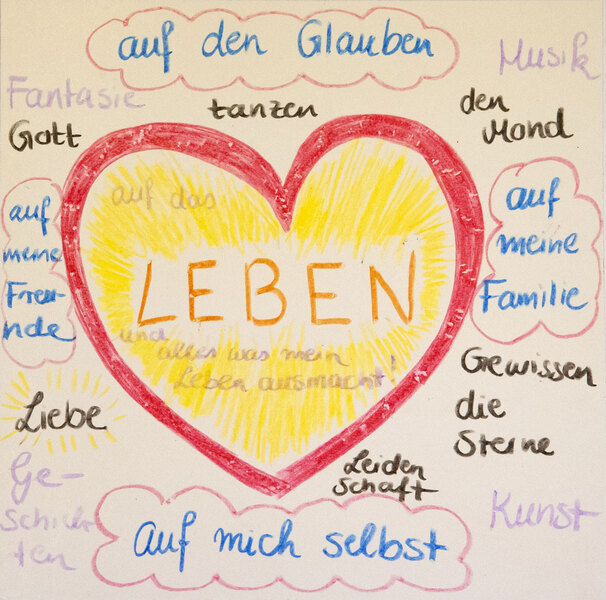 auf den Glauben
Musik
Fantasie
tanzen
den
Mond
Gott
auf das
auf
meine
Freu-
nde
auf
meine
Familie
LEBEN
und
alles was mein
Leben ausmacht!
Liebe
Gewissen
die
Sterne
Leiden
schaft
Ge-
schich-
ten
Kunst
auf mich selbst